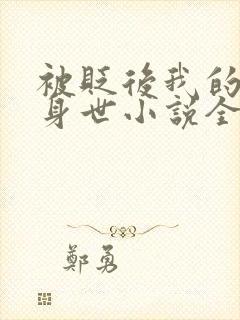 被貶後我的
身世小說全
鄭勇